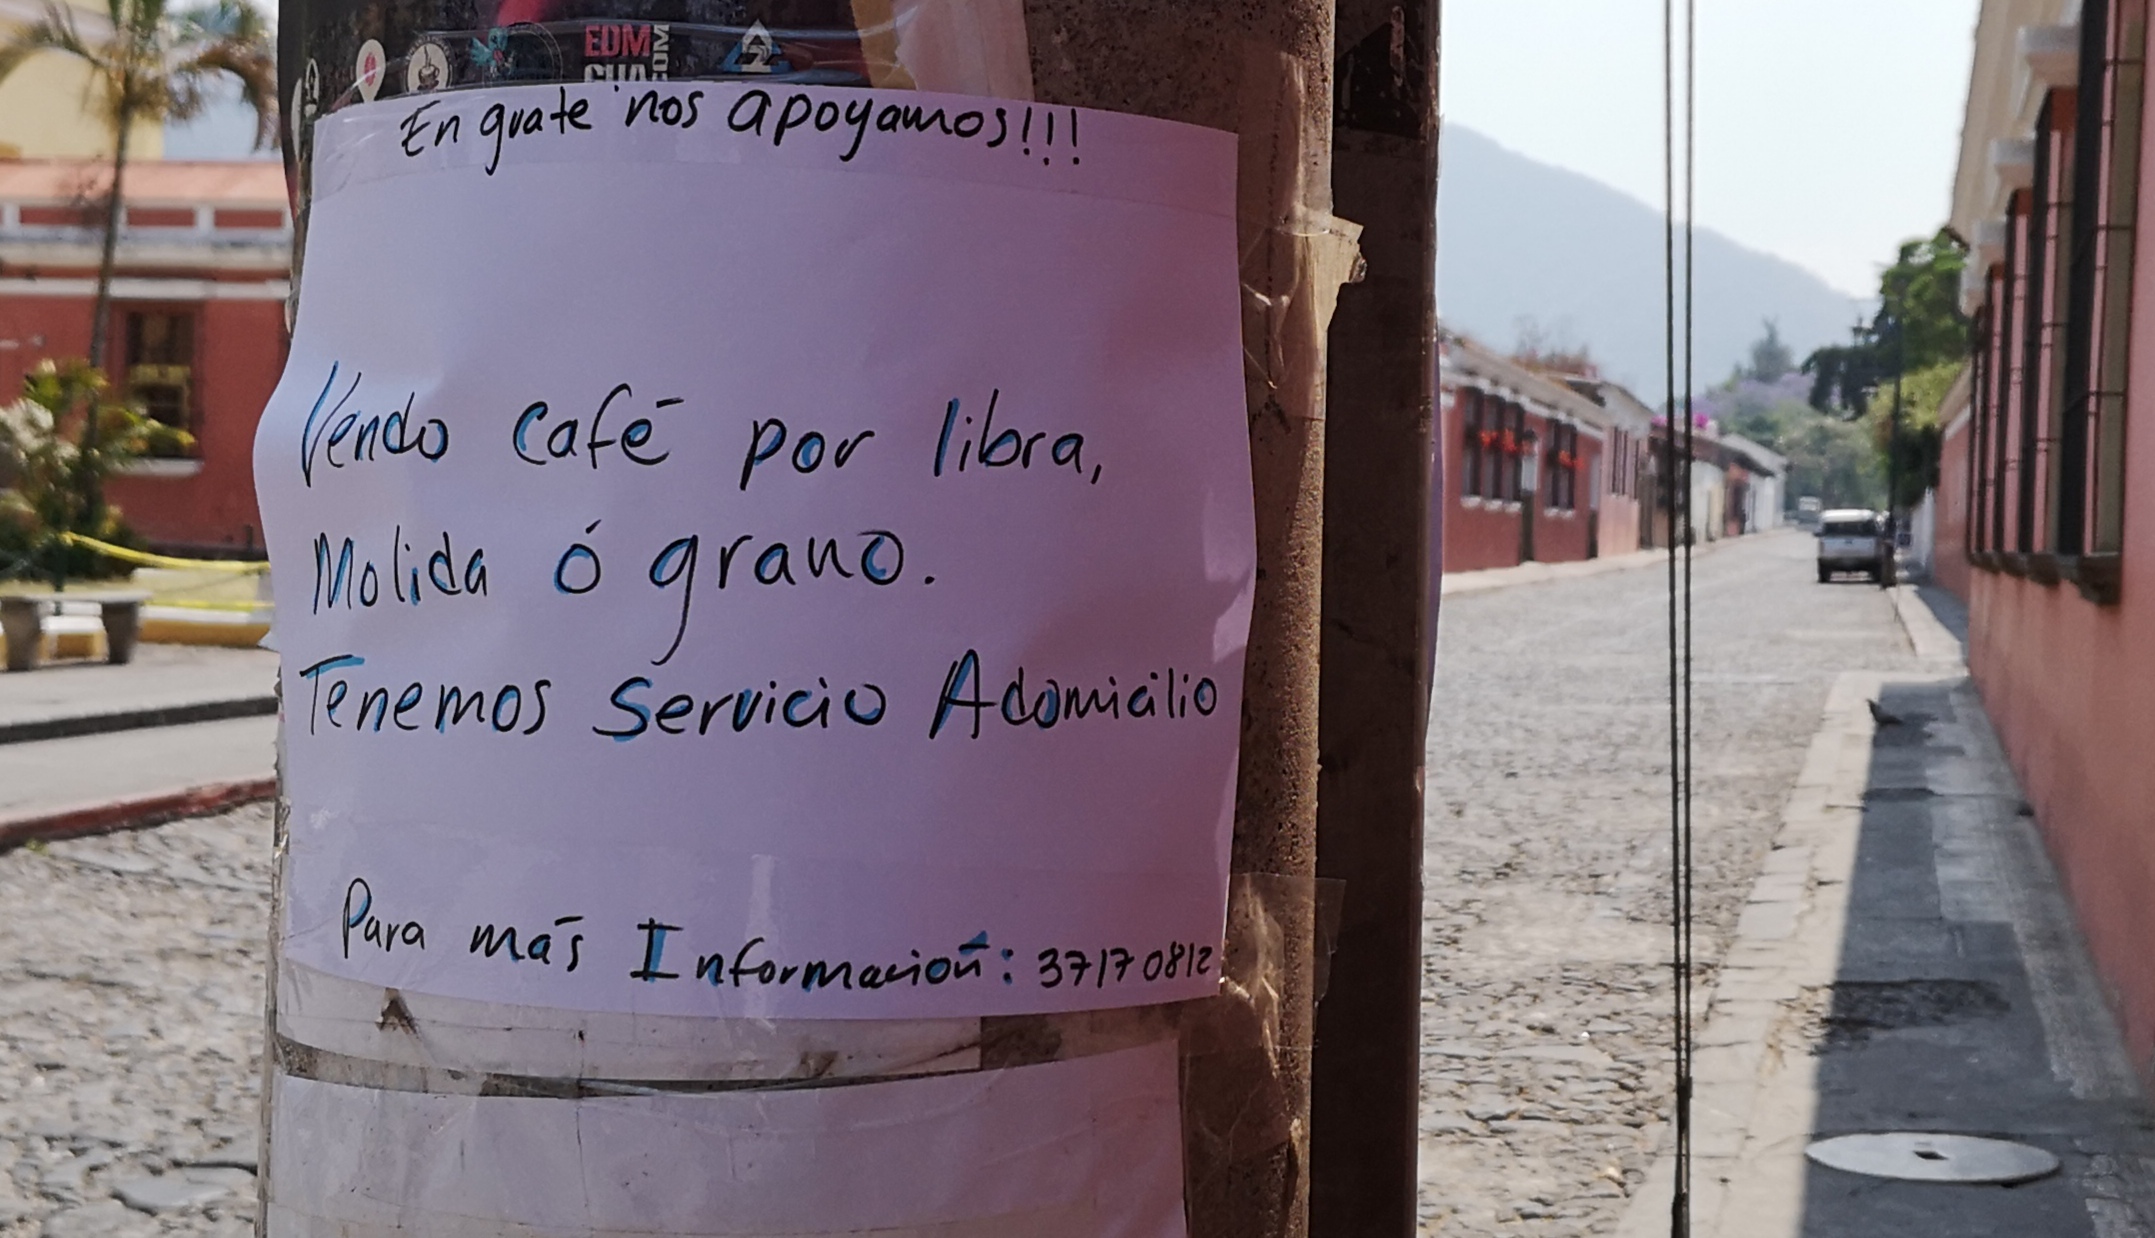 EDM
GUA.COM
En guate nos apoyamos!!!
Vendo café por libra,
Molida ó grano.
Tenemos servicio Adomicilio
Para más Información: 37170812